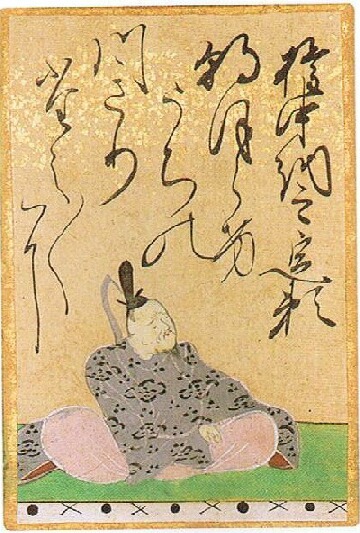 権中納言定頼
朝ほらけ
うちの
川きり
たえ〱に